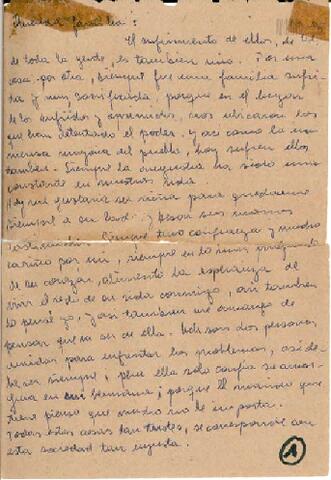 Querida familia:
El sufrimiento de ellos, de
de toda la gente, es también mio. Por una
cosa por otra, siempre fue una familia sufri-
da y muy sacrificada, porque en el lugar
de los sufridos y nos ubicaron los
que han detentado el poder, y así como la in-
mensa mayoría del pueblo, hoy sufren ellos
también. Siempre la ha sido una
constante en nuestras vida.
Hoy me gustaria ser niña para quedarme
siempre a su lado y besar sus manos
Siempre tuvo confianza y mucho
cariño por mi, siempre en lo más
de su corazón, alimentó la esperanza de
vivir el resto de su vida conmigo, asi tambien
lo pensé yo, y asi tambien me
pensar que va ser de ella. son dos personas
unidas para enfrentar los problemas, así de-
be ser siempre, pero ella solo confia
en mi hermana; porque el marido que
tiene pienso que mucho no le importa.
Todas estas cosas tan tristes, se corresponde con
esta sociedad tan injusta.
1